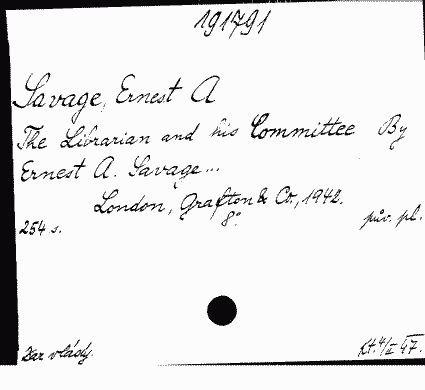 191791
Savage, Ernest A
The Librarian and his Committee By
Ernest A. Savage...
London, Grafton & Co., 1942.
254 s. 8°. pův. pl.
Dar vlády. Kt. 4/II 47.